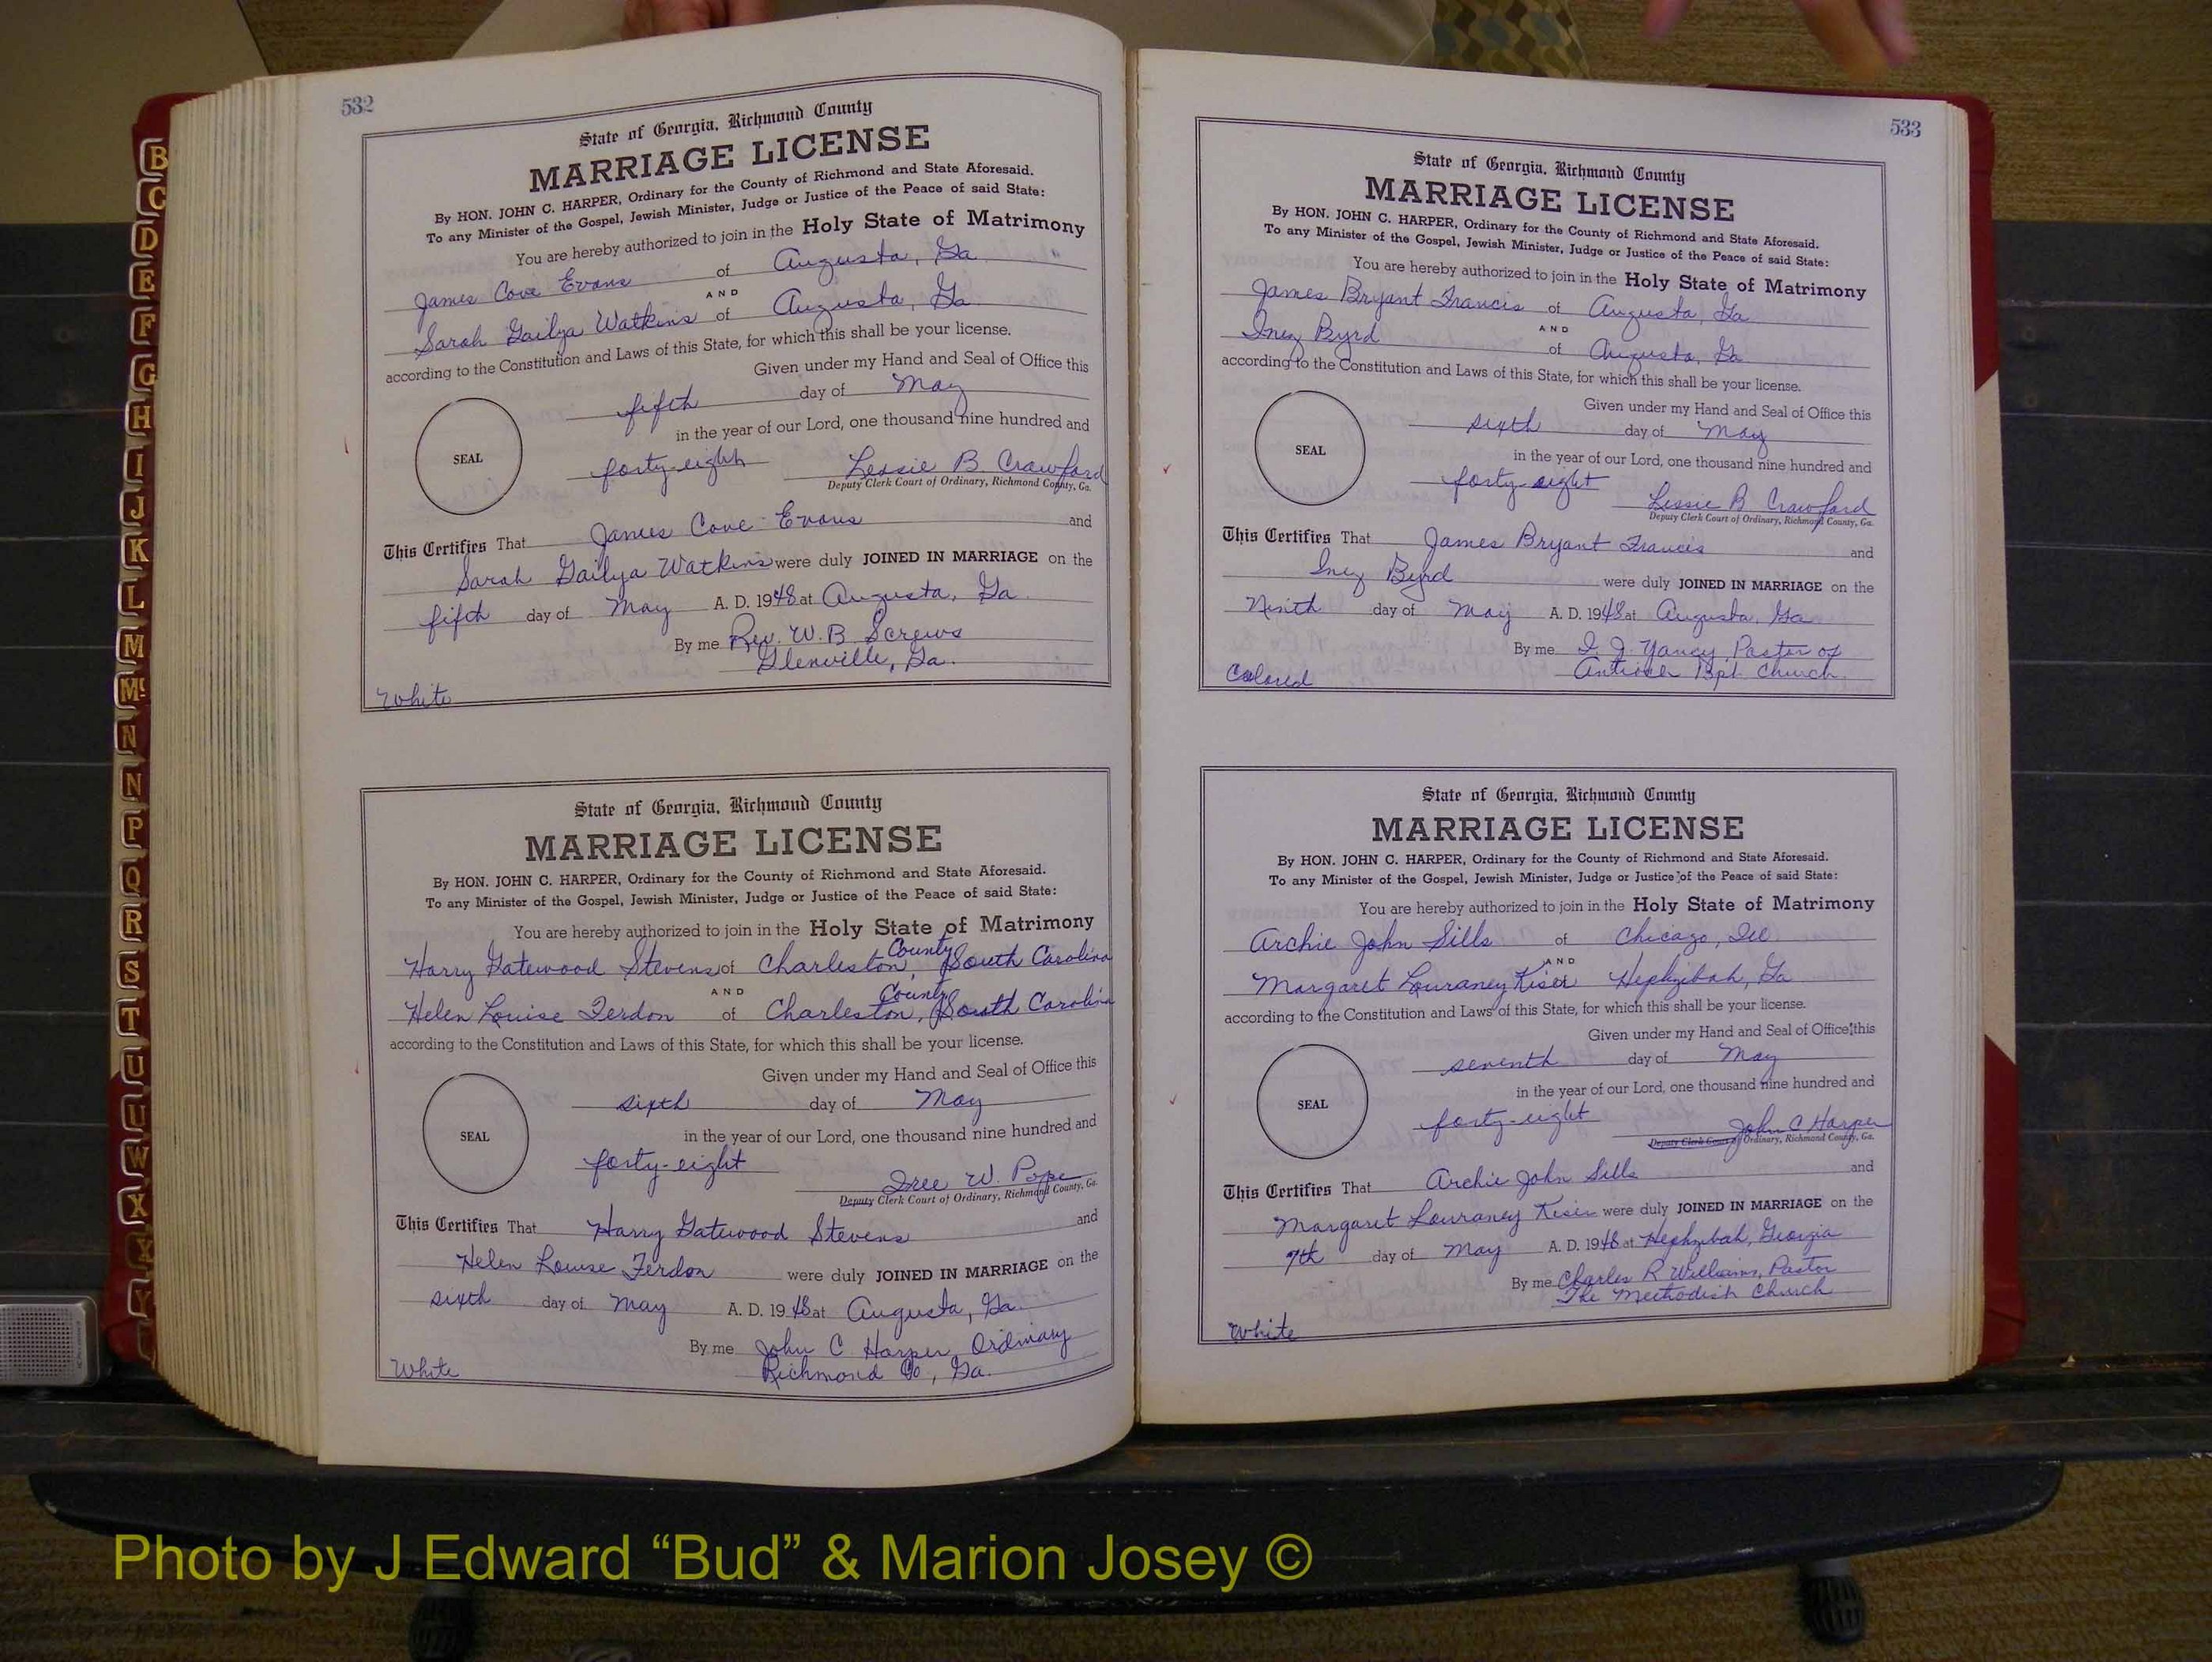 532
State of Georgia, Richmond County
MARRIAGE LICENSE
By HON. JOHN C. HARPER, Ordinary for the County of Richmond and State Aforesaid.
To any Minister of the Gospel, Jewish Minister, Judge or Justice of the Peace of said State:
You are hereby authorized to join in the Holy State of Matrimony
James Cove Evans of Augusta, Ga
AND
Sarah Gailya Watkins of Augusta, Ga
according to the Constitution and Laws of this State, for which this shall be your license.
Given under my Hand and Seal of Office this
fifth day of May
in the year of our Lord, one thousand nine hundred and
SEAL
forty-eight Lessie B. Crawford
Deputy Clerk Court of Ordinary, Richmond County, Ga.
This Certifies That James Cove Evans and
Sarah Gailya Watkins were duly JOINED IN MARRIAGE on the
fifth day of May A. D. 1948 at Augusta, Ga.
By me Rev. W. B. Screws
Glenville, Ga.
White
State of Georgia, Richmond County
MARRIAGE LICENSE
By HON. JOHN C. HARPER, Ordinary for the County of Richmond and State Aforesaid.
To any Minister of the Gospel, Jewish Minister, Judge or Justice of the Peace of said State:
You are hereby authorized to join in the Holy State of Matrimony
Harry Gatewood Stevens of Charleston County, South Carolina
AND
Helen Louise Ferdon of Charleston County, South Carolina
according to the Constitution and Laws of this State, for which this shall be your license.
Given under my Hand and Seal of Office this
sixth day of May
in the year of our Lord, one thousand nine hundred and
SEAL
forty-eight Iree W. Pope
Deputy Clerk Court of Ordinary, Richmond County, Ga.
This Certifies That Harry Gatewood Stevens and
Helen Louise Ferdon were duly JOINED IN MARRIAGE on the
sixth day of May A. D. 1948 at Augusta, Ga.
By me John C Harper, Ordinary
Richmond Co, Ga.
White
533
State of Georgia, Richmond County
MARRIAGE LICENSE
By HON. JOHN C. HARPER, Ordinary for the County of Richmond and State Aforesaid.
To any Minister of the Gospel, Jewish Minister, Judge or Justice of the Peace of said State:
You are hereby authorized to join in the Holy State of Matrimony
James Bryant Francis of Augusta, Ga
AND
Inez Byrd of Augusta, Ga
according to the Constitution and Laws of this State, for which this shall be your license.
Given under my Hand and Seal of Office this
sixth day of May
in the year of our Lord, one thousand nine hundred and
SEAL
forty-eight Lessie B Crawford
Deputy Clerk Court of Ordinary, Richmond County, Ga.
This Certifies That James Bryant Francis and
Inez Byrd were duly JOINED IN MARRIAGE on the
Ninth day of May A. D. 1948 at Augusta, Ga
By me I. J. Yancy, Pastor of
Antioch Bpt. Church
Colored
State of Georgia, Richmond County
MARRIAGE LICENSE
By HON. JOHN C. HARPER, Ordinary for the County of Richmond and State Aforesaid.
To any Minister of the Gospel, Jewish Minister, Judge or Justice of the Peace of said State:
You are hereby authorized to join in the Holy State of Matrimony
Archie John Sills of Chicago, Ill
AND
Margaret Louraney Kiser Hephzibah, Ga
according to the Constitution and Laws of this State, for which this shall be your license.
Given under my Hand and Seal of Office this
seventh day of May
in the year of our Lord, one thousand nine hundred and
SEAL
forty-eight John C Harper
Deputy Clerk Court of Ordinary, Richmond County, Ga.
This Certifies That Archie John Sills and
Margaret Louraney Kiser were duly JOINED IN MARRIAGE on the
7th day of May A. D. 1948 at Hephzibah, Georgia
By me Charles R Williams, Pastor
The Methodist Church
White
B
C
D
E
F
G
H
I
J
K
L
M
Mc
N
N
P
Q
R
S
T
U
U
W
X
Y
Photo by J Edward “Bud” & Marion Josey ©